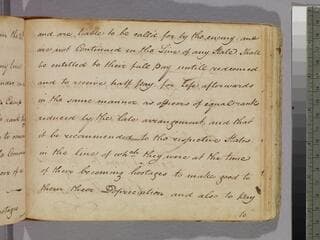 and are liable to be callid for by the enemy, and
are not Continued in the Line of any State Shall
be entitled to their full Pay untill redeemed
and to receive half Pay for Life afterwards
in the same manner as officers of equal rank
reduced by the Late arrangement, and that
it be recommended to the respective States
in the line of which they were at the time
of there becoming hostages to make good to
them there Depreciation and also to pay
to